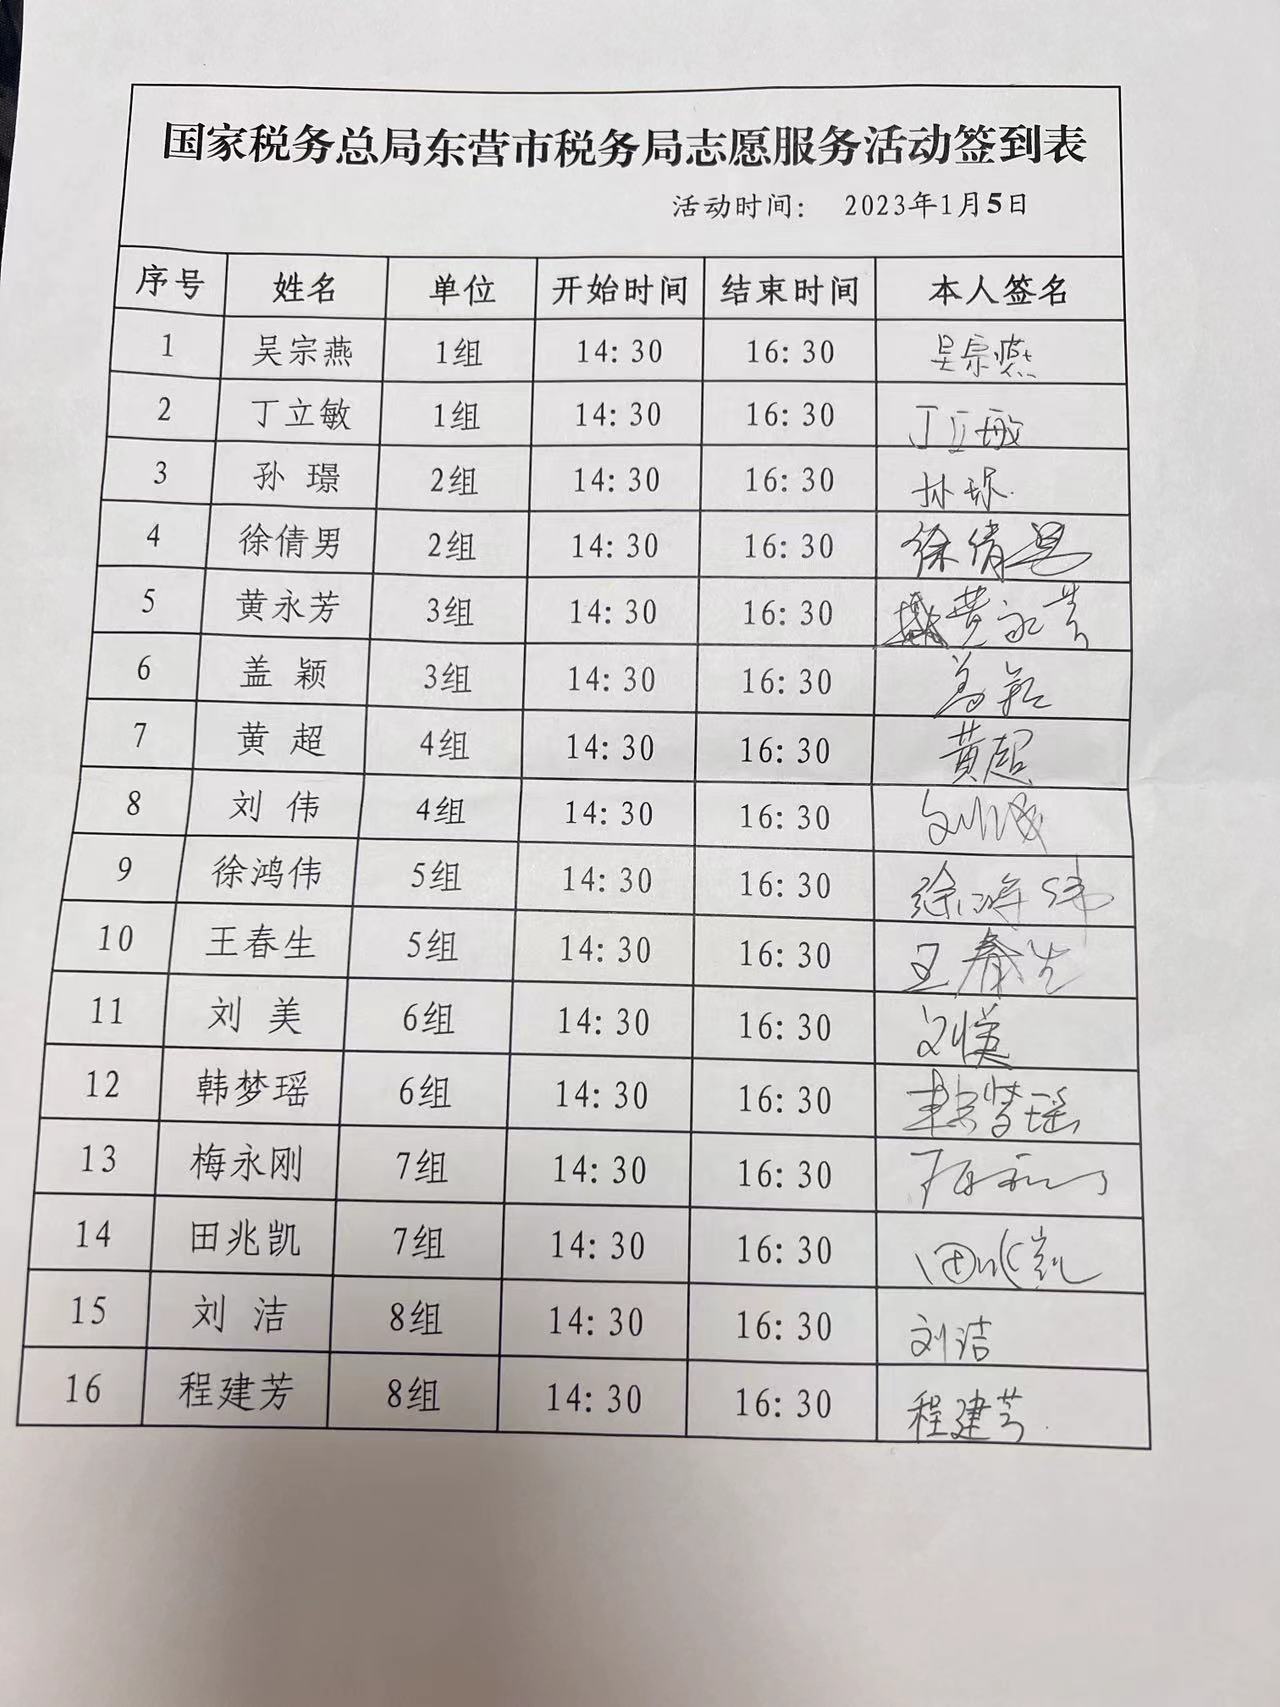 国家税务总局东营市税务局志愿服务活动签到表
活动时间： 2023年1月5日
序号 姓名 单位 开始时间 结束时间 本人签名
1 吴宗燕 1组 14：30 16：30 吴宗燕
2 丁立敏 1组 14：30 16：30 丁立敏
3 孙 璟 2组 14：30 16：30
4 徐倩男 2组 14：30 16：30 徐倩男
5 黄永芳 3组 14：30 16：30 黄永芳
6 盖 颖 3组 14：30 16：30 盖颖
7 黄 超 4组 14：30 16：30 黄超
8 刘 伟 4组 14：30 16：30
9 徐鸿伟 5组 14：30 16：30 徐鸿伟
10 王春生 5组 14：30 16：30 王春生
11 刘 美 6组 14：30 16：30 刘美
12 韩梦瑶 6组 14：30 16：30 韩梦瑶
13 梅永刚 7组 14：30 16：30
14 田兆凯 7组 14：30 16：30 田兆凯
15 刘 洁 8组 14：30 16：30 刘洁
16 程建芳 8组 14：30 16：30 程建芳